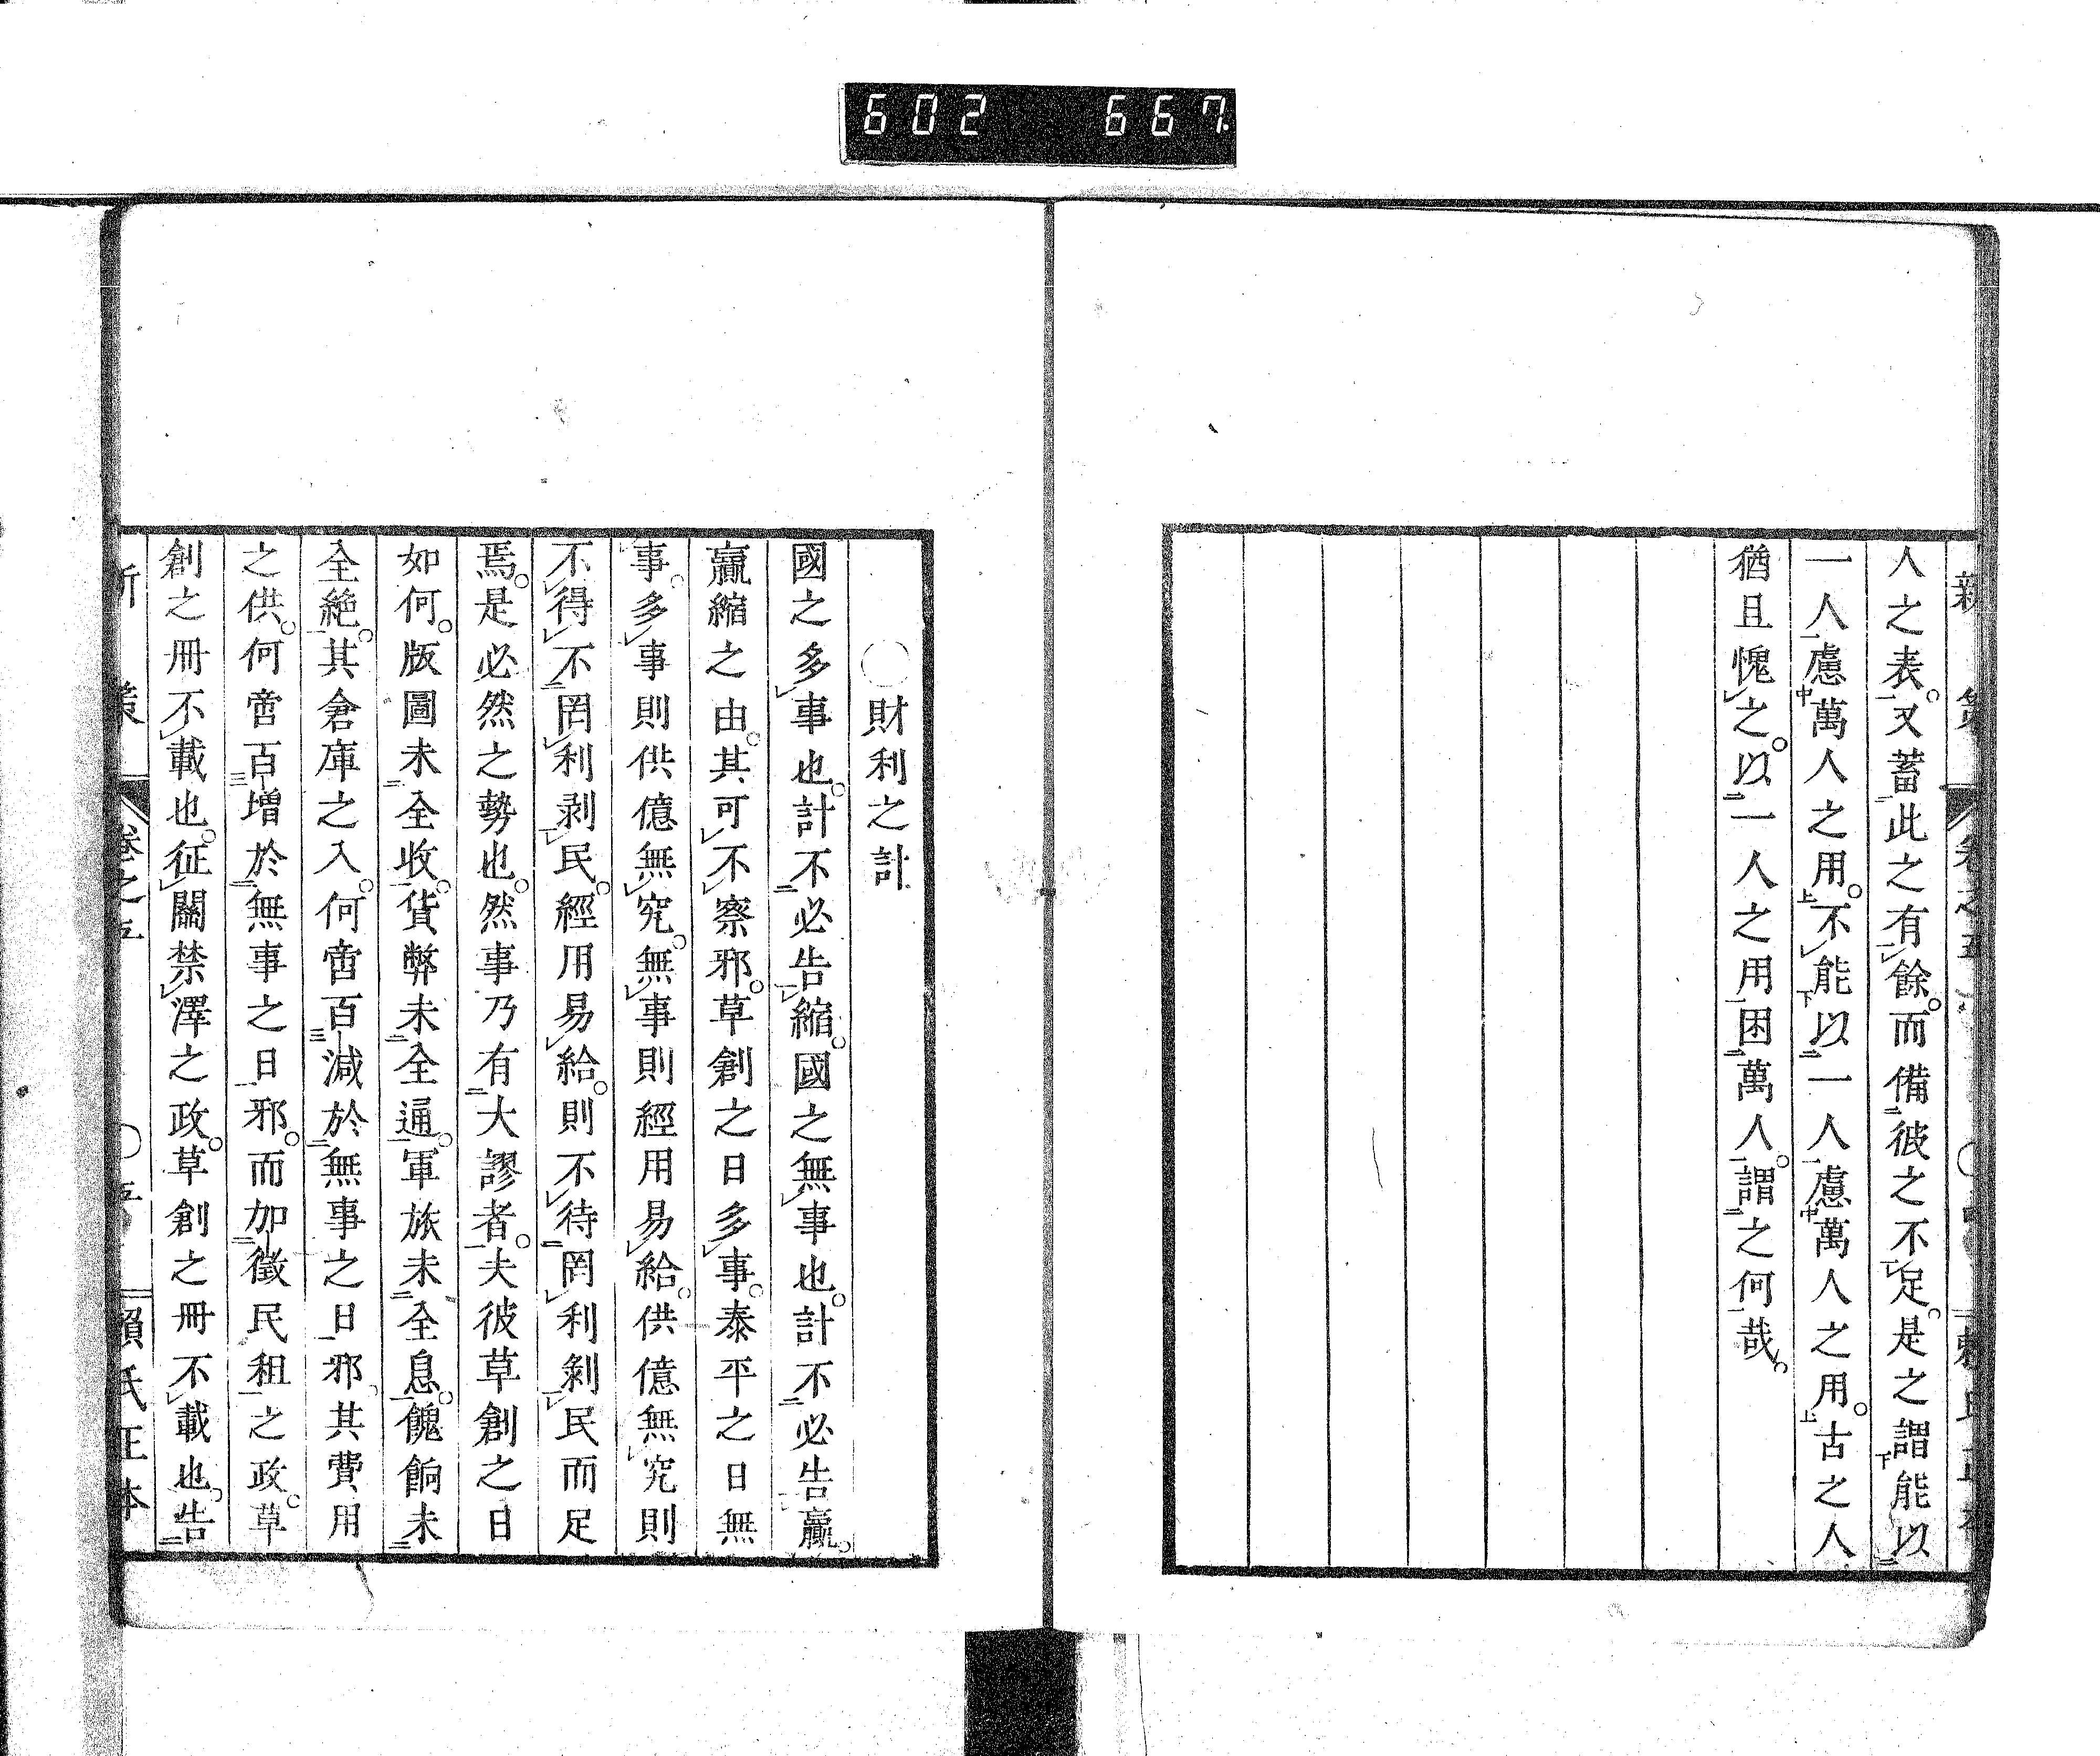 602 667
人之表。又蓄此之有餘。而備彼之不足。是之謂能以
一人慮萬人之用。不能以一人慮萬人之用。古之人
猶且愧之。以一人之用困萬人。謂之何哉。
○財利之計
國之多事也。計不必告縮。國之無事也。計不必告贏。
贏縮之由。其可不察邪。草創之日多事。泰平之日無
事。多事則供億無究。無事則經用易給。供億無究則
不得不罔利剥民。經用易給。則不待罔利剝民而足
焉。是必然之勢也。然事乃有大謬者。夫彼草創之日
如何。版圖未全收。貨幣未全通。軍旅未全息。餽餉未
全絶。其倉庫之入。何啻百減於無事之日邪。其費用
之供。何啻百増於無事之日邪。而加徵民租之政。草
創之冊不載也。征關禁澤之政。草創之冊不載也。告
新策 卷之五 賴氏正本